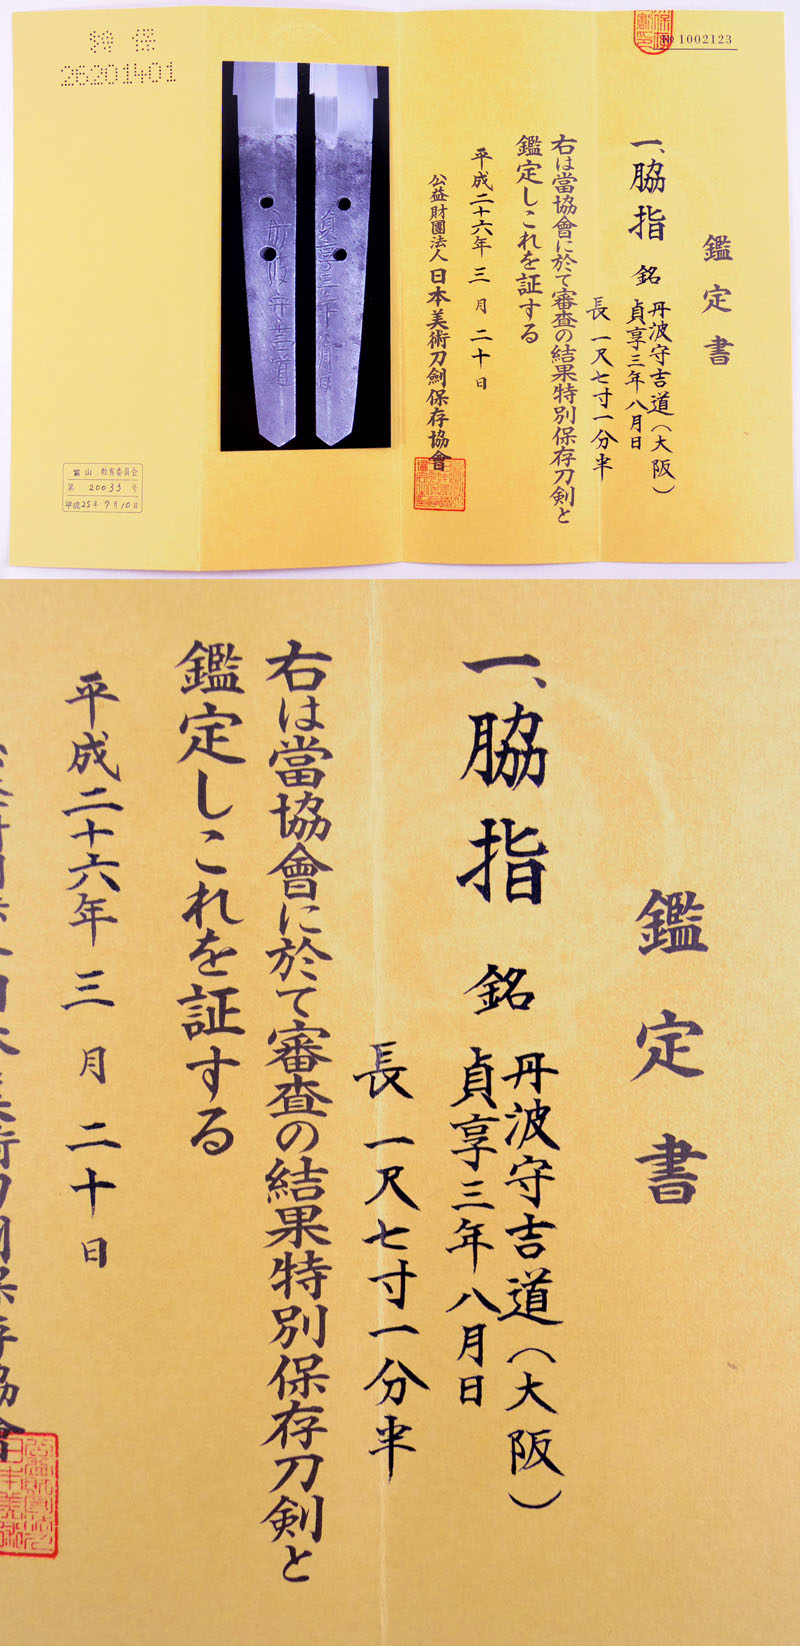 № 1002123
鑑定書
一、脇指 銘 丹波守吉道（大阪）
貞享三年八月日
長 一尺七寸一分半
右は當協會に於て審査の結果特別保存刀剣と
鑑定しこれを証する
平成二十六年 三月二十日
公益財團法人 日本美術刀劍保存協會
丹波守吉道
貞享三年八月日
特保
26201401
富山 教育委員会
第 20033 号
平成25年 9月10日
鑑定書
一、脇指 銘 丹波守吉道（大阪）
貞享三年八月日
長 一尺七寸一分半
右は當協會に於て審査の結果特別保存刀剣と
鑑定しこれを証する
平成二十六年 三月二十日
日本美術刀劍保存協會